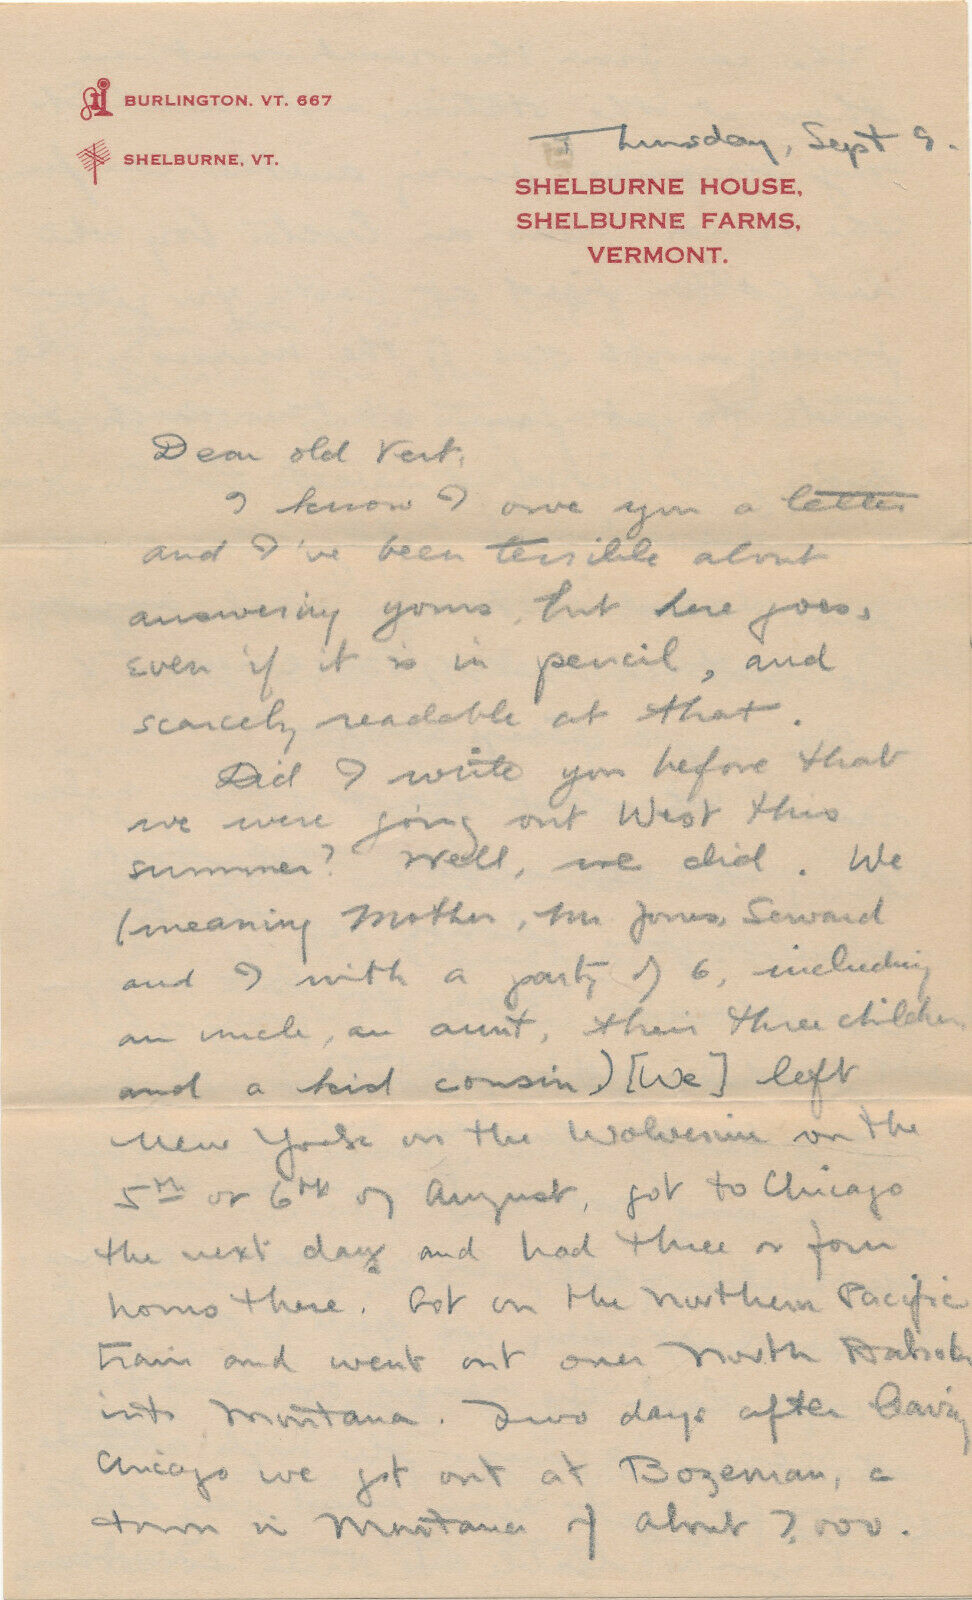 BURLINGTON. VT. 667
SHELBURNE, VT.
Thursday, Sept 9.
SHELBURNE HOUSE,
SHELBURNE FARMS,
VERMONT.
Dear old Vert,
I know I owe you a letter
and I've been terrible about
answering yours, but here goes,
even if it is in pencil, and
scarcely readable at that.
Did I write you before that
we were going out West this
summer? Well, we did. We
(meaning Mother, Mr Jones, Seward
and I with a party of 6, including
an uncle, an aunt, their three children
and a kid cousin) [We] left
New York on the Wolverine on the
5th or 6th of August, got to Chicago
the next day and had three or four
hours there. Got on the Northern Pacific
train and went out over North Dakota
into Montana. Two days after leaving
Chicago we got out at Bozeman, a
town in Montana of about 7,000.